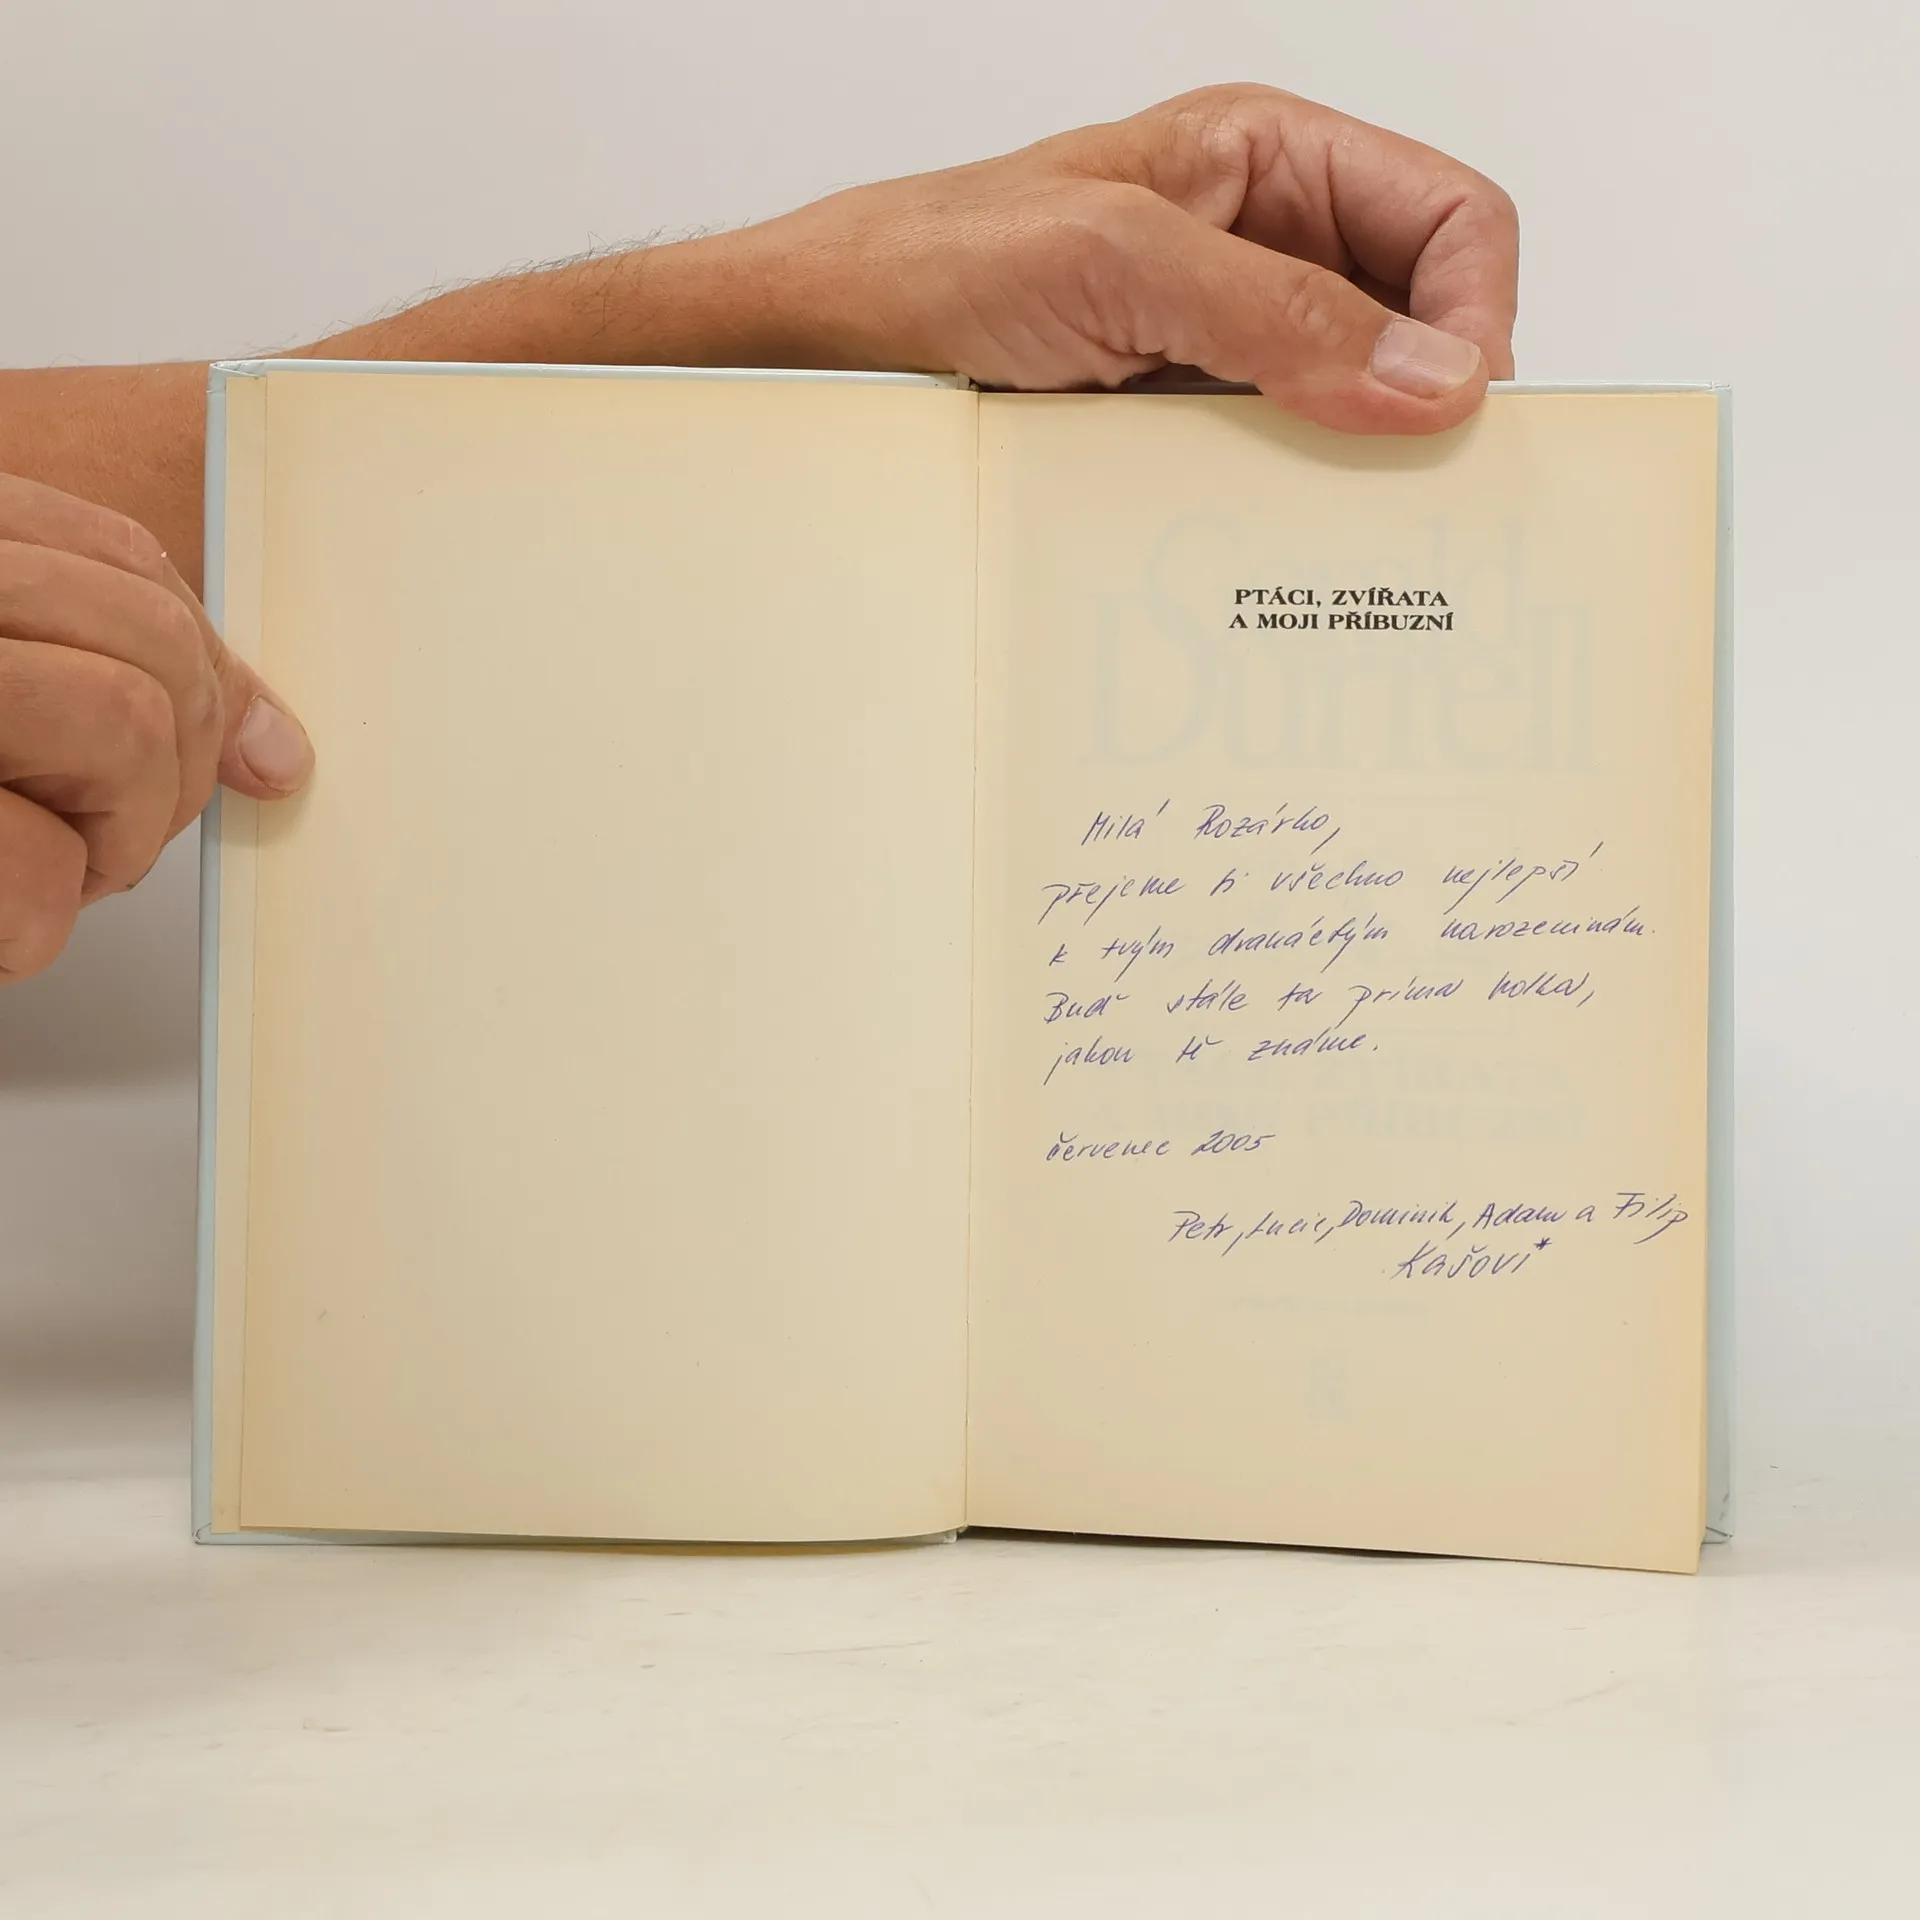 Gerald
Durrell
PTÁCI, ZVÍŘATA
A MOJI PŘÍBUZNÍ
Milá Rozárko,
přejeme ti všechno nejlepší
k tvým dvanáctým narozeninám.
Buď stále ta príma holka,
jakou tě známe.
červenec 2005
Petr, Lucie, Dominik, Adam a Filip
Kašovi*